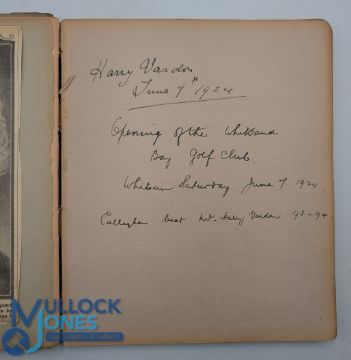 Harry Vardon
June 7th 1924
Opening of the Whitsand
Bay Golf Club.
Saturday June 7. 1924.
Callaghan beat Mr. Harry Vardon 93-94
MULLOCK
JONES